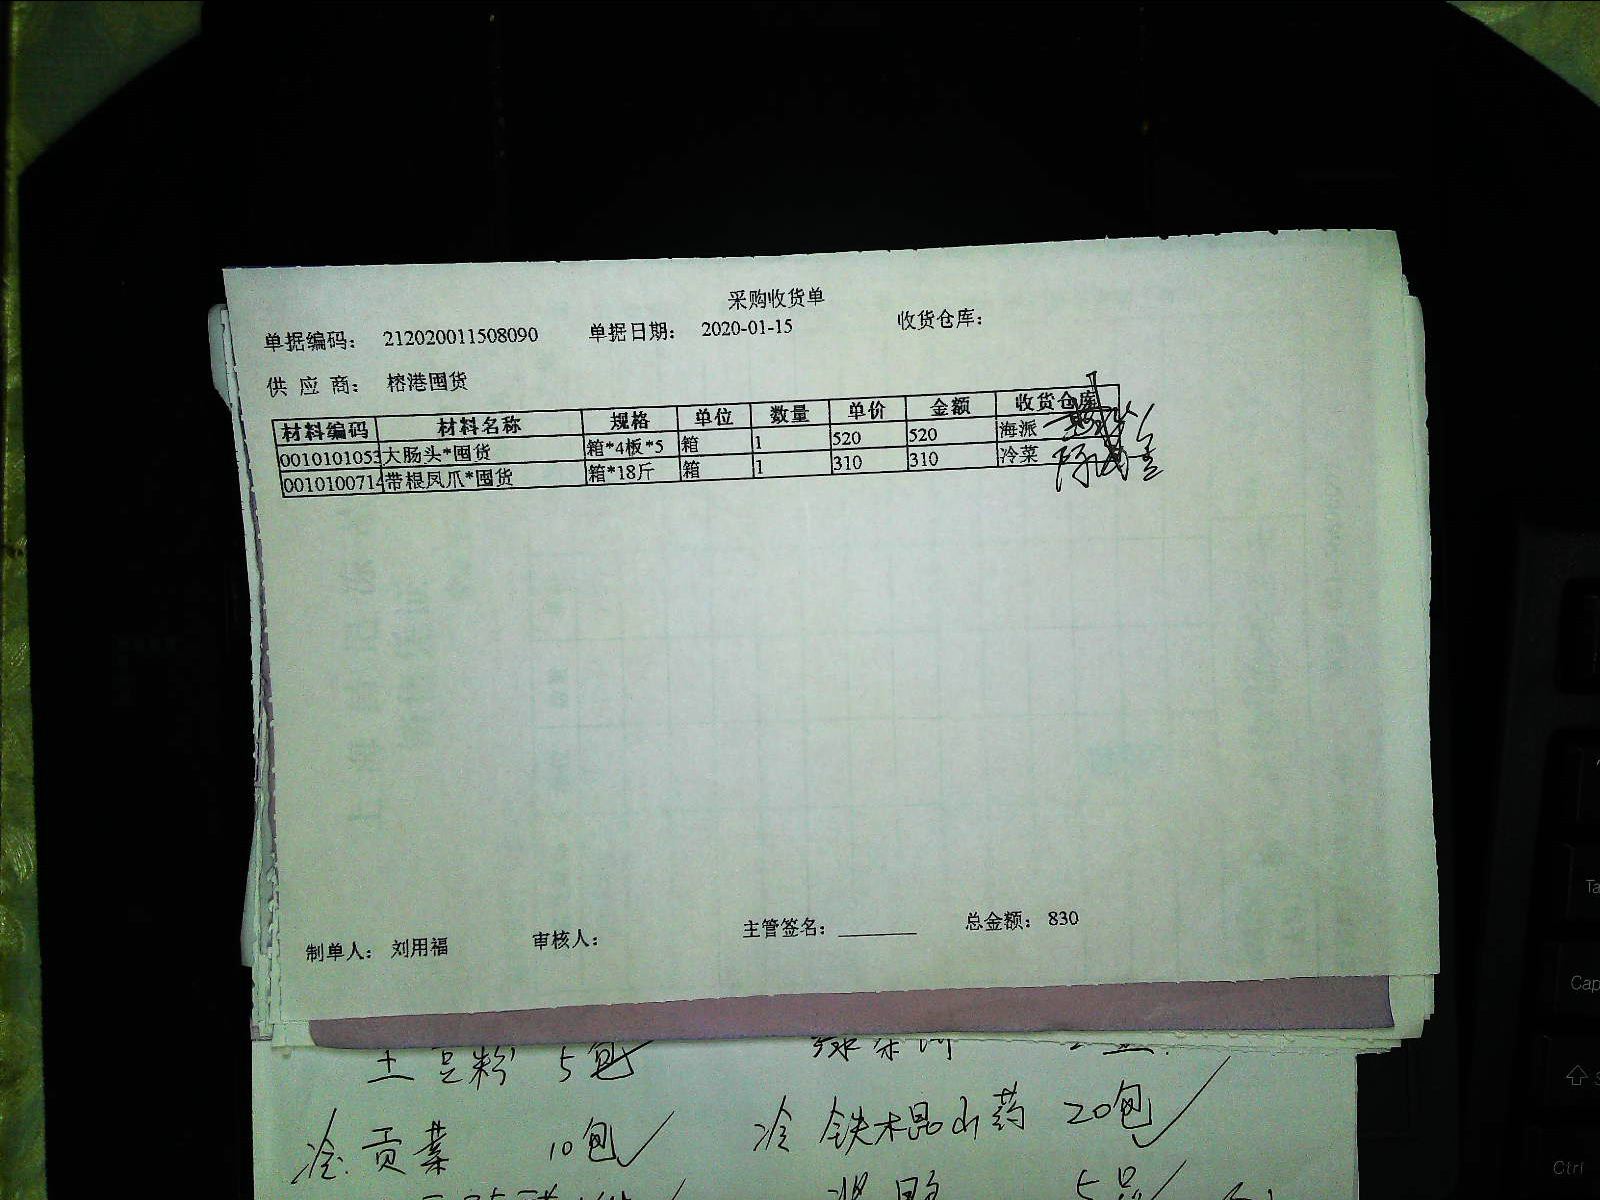 采购收货单
单据编码： 212020011508090 单据日期： 2020-01-15 收货仓库：
供 应 商： 榕港囤货
材料编码 材料名称 规格 单位 数量 单价 金额 收货仓库
0010101053 大肠头*囤货 箱*4板*5 箱 1 520 520 海派
0010100714 带根凤爪*囤货 箱*18斤 箱 1 310 310 冷菜
制单人： 刘用福 审核人： 主管签名：________ 总金额： 830
土豆粉 5包
冷 贡菜 10包 冷 铁木昆山药 20包
Cap
Ctrl